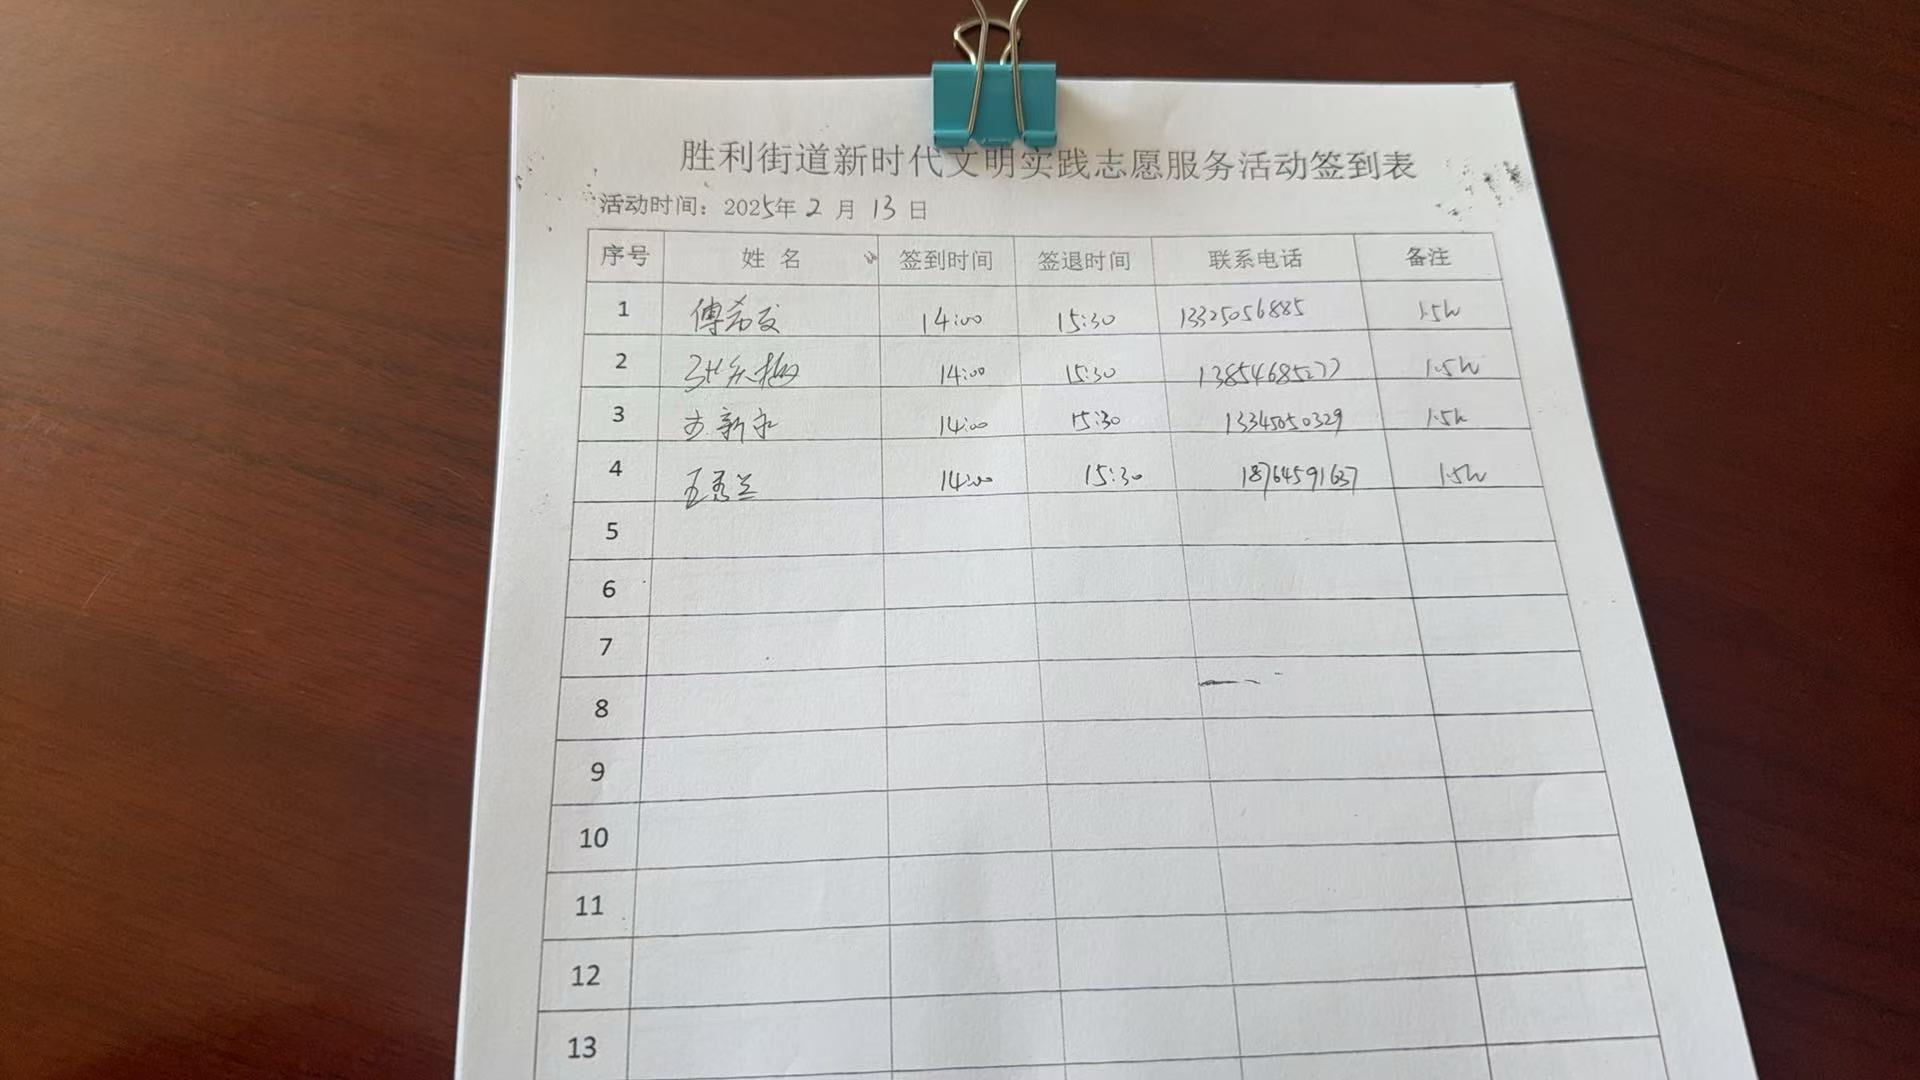 胜利街道新时代文明实践志愿服务活动签到表
活动时间：2025年 2 月 13 日
序号 姓 名 签到时间 签退时间 联系电话 备注
1 傅希文 14:00 15:30 13325056885 1.5h
2 14:00 15:30 13854685277 1.5h
3 新永 14:00 15:30 13345050329 1.5h
4 王秀兰 14:00 15:30 18764591637 1.5h
5
6
7
8
9
10
11
12
13